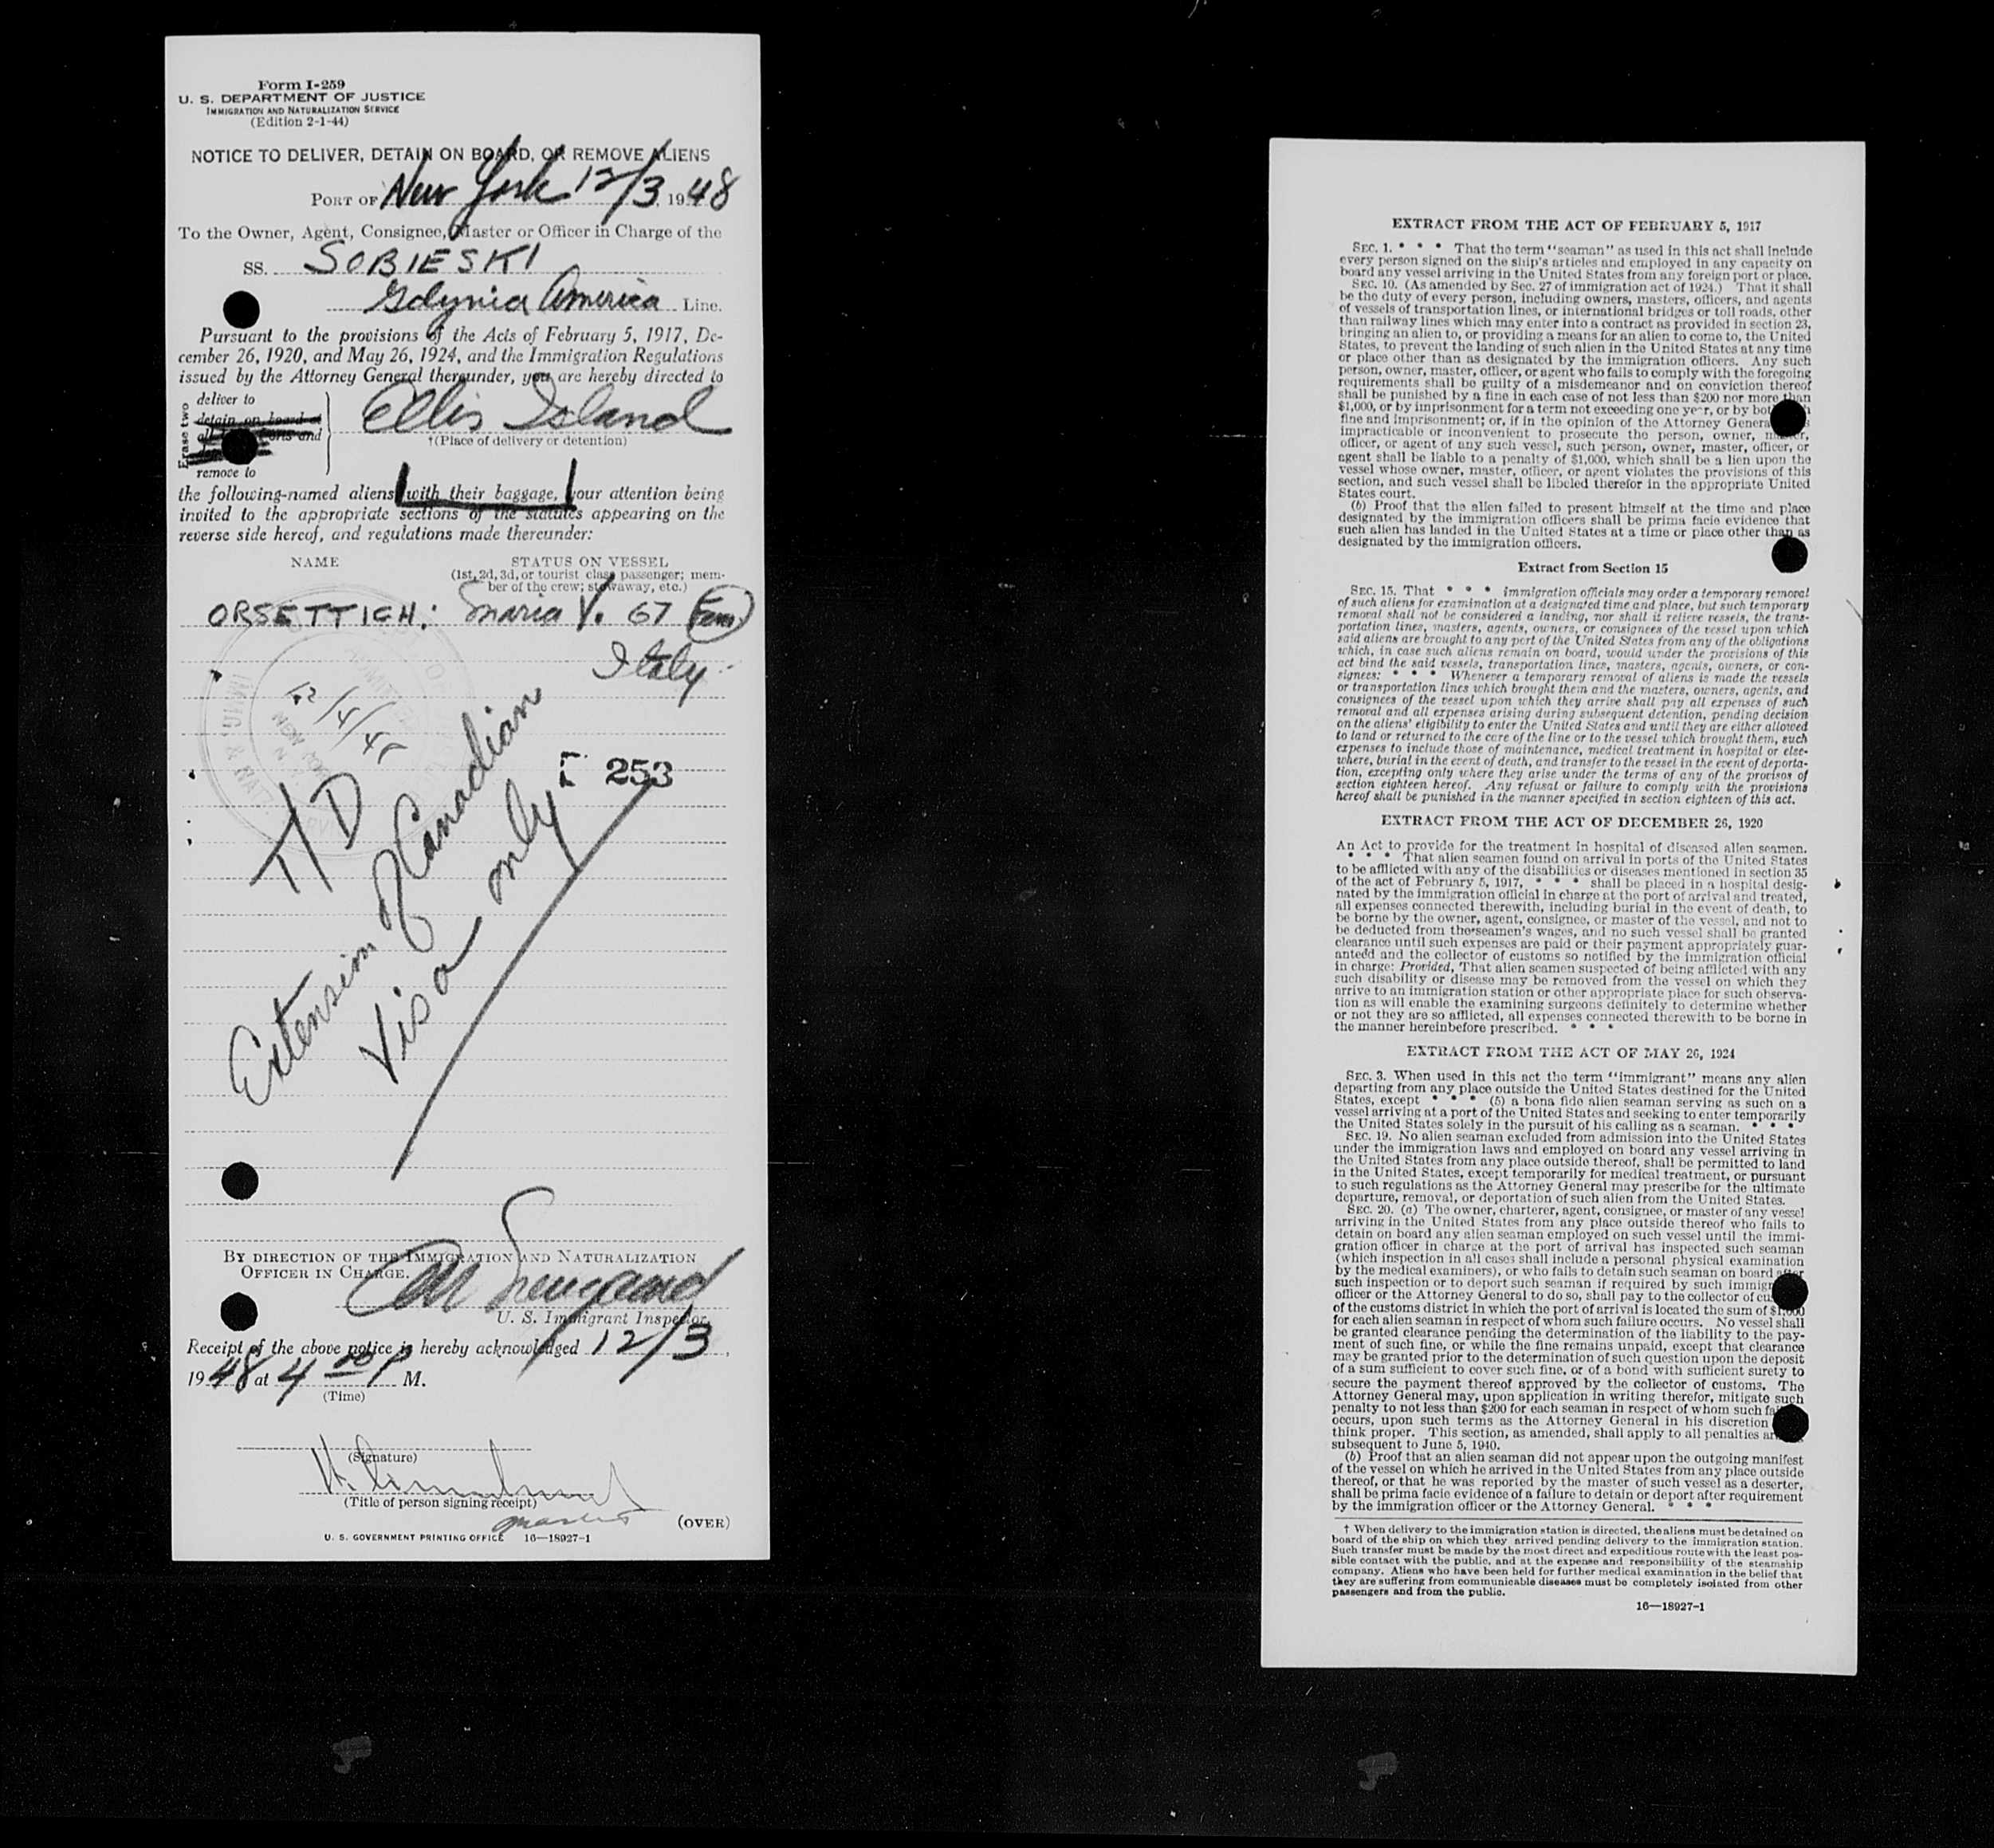 Form I-259
U. S. DEPARTMENT OF JUSTICE
IMMIGRATION AND NATURALIZATION SERVICE
(Edition 2-1-44)
NOTICE TO DELIVER, DETAIN ON BOARD, OR REMOVE ALIENS
PORT OF New York 12/3, 1948
To the Owner, Agent, Consignee, Master or Officer in Charge of the
SS. SOBIESKI
Gdynia America Line.
Pursuant to the provisions of the Acts of February 5, 1917, De-
cember 26, 1920, and May 26, 1924, and the Immigration Regulations
issued by the Attorney General thereunder, you are hereby directed to
Erase two
deliver to
detain on board at
remove to
Ellis Island
†(Place of delivery or detention)
the following-named aliens with their baggage, your attention being
invited to the appropriate sections of the statutes appearing on the
reverse side hereof, and regulations made thereunder:
NAME STATUS ON VESSEL
(1st, 2d, 3d, or tourist class passenger; mem-
ber of the crew; stowaway, etc.)
ORSETTICH: Maria V. 67 Fem
Italy
12/4/4
253
T/D
Extension of Canadian
Visa only
BY DIRECTION OF THE IMMIGRATION AND NATURALIZATION
OFFICER IN CHARGE.
U. S. Immigrant Inspector.
Receipt of the above notice is hereby acknowledged 12/3,
1948 at 4 00 P M.
(Time)
(Signature)
(Title of person signing receipt)
Master
(OVER)
U. S. GOVERNMENT PRINTING OFFICE 16—18927-1
EXTRACT FROM THE ACT OF FEBRUARY 5, 1917
SEC. 1. * * * That the term "seaman" as used in this act shall include
every person signed on the ship's articles and employed in any capacity on
board any vessel arriving in the United States from any foreign port or place.
SEC. 10. (As amended by Sec. 27 of immigration act of 1924.) That it shall
be the duty of every person, including owners, masters, officers, and agents
of vessels of transportation lines, or international bridges or toll roads, other
than railway lines which may enter into a contract as provided in section 23,
bringing an alien to, or providing a means for an alien to come to, the United
States, to prevent the landing of such alien in the United States at any time
or place other than as designated by the immigration officers. Any such
person, owner, master, officer, or agent who fails to comply with the foregoing
requirements shall be guilty of a misdemeanor and on conviction thereof
shall be punished by a fine in each case of not less than $200 nor more than
$1,000, or by imprisonment for a term not exceeding one year, or by
fine and imprisonment; or, if in the opinion of the Attorney
impracticable or inconvenient to prosecute the person, owner, master,
officer, or agent of any such vessel, such person, owner, master, officer, or
agent shall be liable to a penalty of $1,000, which shall be a lien upon the
vessel whose owner, master, officer, or agent violates the provisions of this
section, and such vessel shall be libeled therefor in the appropriate United
States court.
(b) Proof that the alien failed to present himself at the time and place
designated by the immigration officers shall be prima facie evidence that
such alien has landed in the United States at a time or place other than as
designated by the immigration officers.
Extract from Section 15
SEC. 15. That * * * immigration officials may order a temporary removal
of such aliens for examination at a designated time and place, but such temporary
removal shall not be considered a landing, nor shall it relieve vessels, the trans-
portation lines, masters, agents, owners, or consignees of the vessel upon which
said aliens are brought to any port of the United States from any of the obligations
which, in case such aliens remain on board, would under the provisions of this
act bind the said vessels, transportation lines, masters, agents, owners, or con-
signees: * * * Whenever a temporary removal of aliens is made the vessels
or transportation lines which brought them and the masters, owners, agents, and
consignees of the vessel upon which they arrive shall pay all expenses of such
removal and all expenses arising during subsequent detention, pending decision
on the aliens' eligibility to enter the United States and until they are either allowed
to land or returned to the care of the line or to the vessel which brought them, such
expenses to include those of maintenance, medical treatment in hospital or else-
where, burial in the event of death, and transfer to the vessel in the event of deporta-
tion, excepting only where they arise under the terms of any of the provisos of
section eighteen hereof. Any refusal or failure to comply with the provisions
hereof shall be punished in the manner specified in section eighteen of this act.
EXTRACT FROM THE ACT OF DECEMBER 26, 1920
An Act to provide for the treatment in hospital of diseased alien seamen.
* * * That alien seamen found on arrival in ports of the United States
to be afflicted with any of the disabilities or diseases mentioned in section 35
of the act of February 5, 1917, * * * shall be placed in a hospital desig-
nated by the immigration official in charge at the port of arrival and treated,
all expenses connected therewith, including burial in the event of death, to
be borne by the owner, agent, consignee, or master of the vessel, and not to
be deducted from the seamen's wages, and no such vessel shall be granted
clearance until such expenses are paid or their payment appropriately guar-
anteed and the collector of customs so notified by the immigration official
in charge: Provided, That alien seamen suspected of being afflicted with any
such disability or disease may be removed from the vessel on which they
arrive to an immigration station or other appropriate place for such observa-
tion as will enable the examining surgeons definitely to determine whether
or not they are so afflicted, all expenses connected therewith to be borne in
the manner hereinbefore prescribed. * * *
EXTRACT FROM THE ACT OF MAY 26, 1924
SEC. 3. When used in this act the term "immigrant" means any alien
departing from any place outside the United States destined for the United
States, except * * * (5) a bona fide alien seaman serving as such on a
vessel arriving at a port of the United States and seeking to enter temporarily
the United States solely in the pursuit of his calling as a seaman. * * *
SEC. 19. No alien seaman excluded from admission into the United States
under the immigration laws and employed on board any vessel arriving in
the United States from any place outside thereof, shall be permitted to land
in the United States, except temporarily for medical treatment, or pursuant
to such regulations as the Attorney General may prescribe for the ultimate
departure, removal, or deportation of such alien from the United States.
SEC. 20. (a) The owner, charterer, agent, consignee, or master of any vessel
arriving in the United States from any place outside thereof who fails to
detain on board any alien seaman employed on such vessel until the immi-
gration officer in charge at the port of arrival has inspected such seaman
(which inspection in all cases shall include a personal physical examination
by the medical examiners), or who fails to detain such seaman on board after
such inspection or to deport such seaman if required by such
officer or the Attorney General to do so, shall pay to the collector of
of the customs district in which the port of arrival is located the sum of $1,000
for each alien seaman in respect of whom such failure occurs. No vessel shall
be granted clearance pending the determination of the liability to the pay-
ment of such fine, or while the fine remains unpaid, except that clearance
may be granted prior to the determination of such question upon the deposit
of a sum sufficient to cover such fine, or of a bond with sufficient surety to
secure the payment thereof approved by the collector of customs. The
Attorney General may, upon application in writing therefor, mitigate such
penalty to not less than $200 for each seaman in respect of whom such
occurs, upon such terms as the Attorney General in his discretion
think proper. This section, as amended, shall apply to all penalties
subsequent to June 5, 1940.
(b) Proof that an alien seaman did not appear upon the outgoing manifest
of the vessel on which he arrived in the United States from any place outside
thereof, or that he was reported by the master of such vessel as a deserter,
shall be prima facie evidence of a failure to detain or deport after requirement
by the immigration officer or the Attorney General. * * *
† When delivery to the immigration station is directed, the aliens must be detained on
board of the ship on which they arrived pending delivery to the immigration station.
Such transfer must be made by the most direct and expeditious route with the least pos-
sible contact with the public, and at the expense and responsibility of the steamship
company. Aliens who have been held for further medical examination in the belief that
they are suffering from communicable diseases must be completely isolated from other
passengers and from the public.
16—18927-1